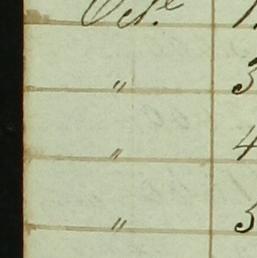 Oct.r 1
" 3
" 4
" 5